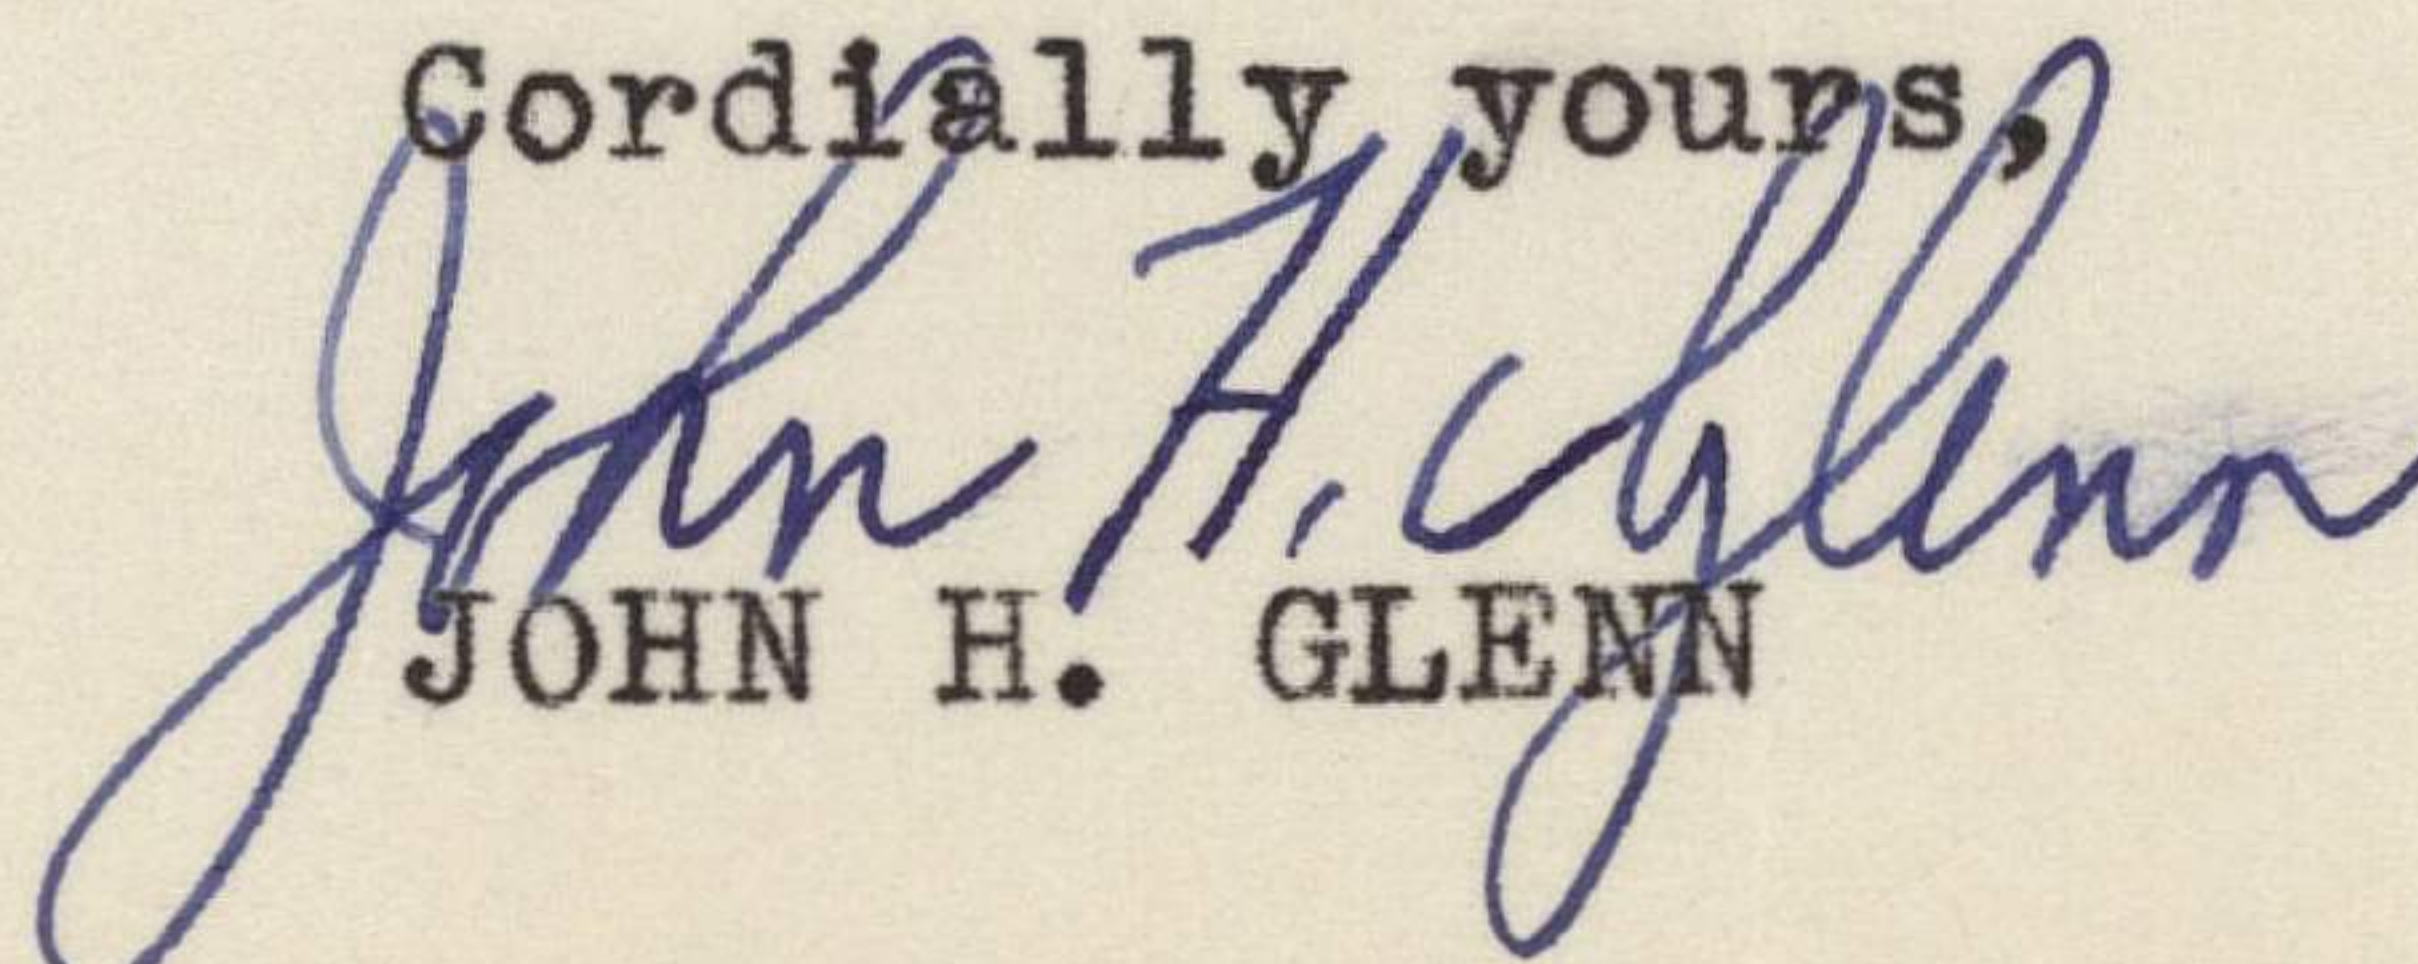 Cordially yours,
John H. Glenn
JOHN H. GLENN